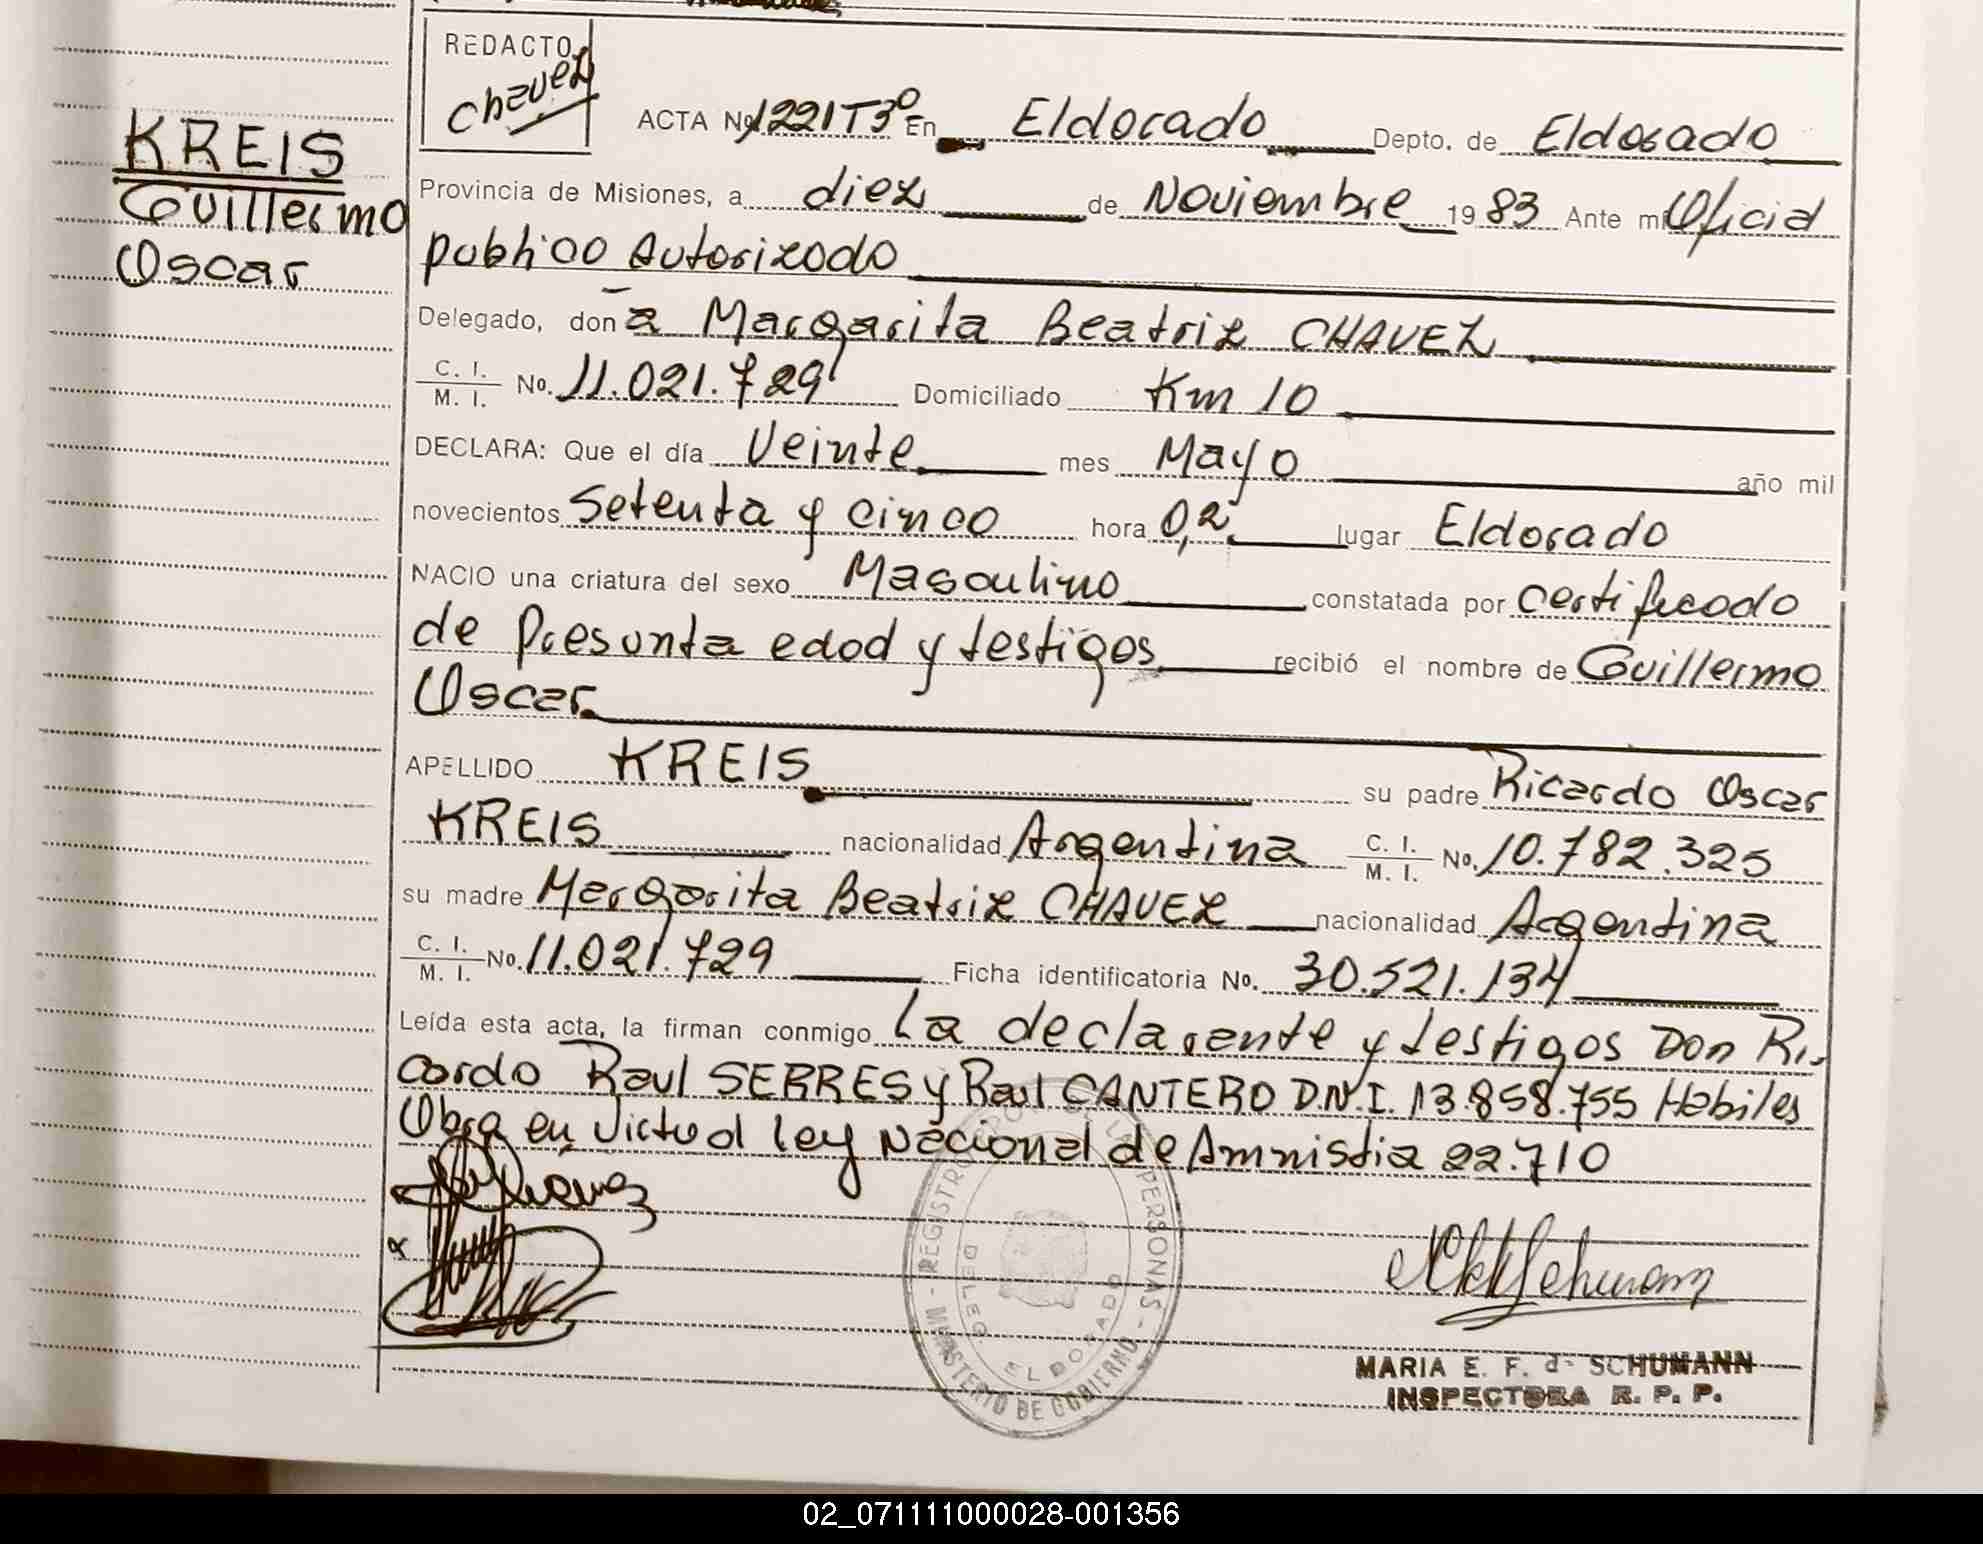 REDACTO
Chavez
KREIS
Guillermo
Oscar
ACTA No 1221T3º En Eldorado Depto. de Eldorado
Provincia de Misiones, a diez de Noviembre 1983 Ante mi Oficial
publico Autorizado
Delegado, don a Margarita Beatriz CHAVEZ
C. I.
M. I. No. 11.021.729 Domiciliado Km 10
DECLARA: Que el día Veinte mes Mayo año mil
novecientos Setenta y cinco hora 0,2 lugar Eldorado
NACIO una criatura del sexo Masculino constatada por certificado
de Presunta edad y testigos recibió el nombre de Guillermo
Oscar
APELLIDO KREIS su padre Ricardo Oscar
KREIS nacionalidad Argentina C. I. M. I. No. 10.782.325
su madre Margarita Beatriz CHAVEZ nacionalidad Argentina
C. I.
M. I. No. 11.021.729 Ficha identificatoria No. 30.521.134
Leída esta acta, la firman conmigo La declarante y testigos Don Ri
cardo Raul SERRES y Raul CANTERO D.N.I. 13.858.755 Habiles
Obra en Victud ley Nacional de Amnistia 22.710
REGISTRO PERSONAS - MINISTERIO DE GOBIERNO -
DELEG. ELDORADO
MARIA E. F. de SCHUMANN
INSPECTORA R. P. P.
02_071111000028-001356